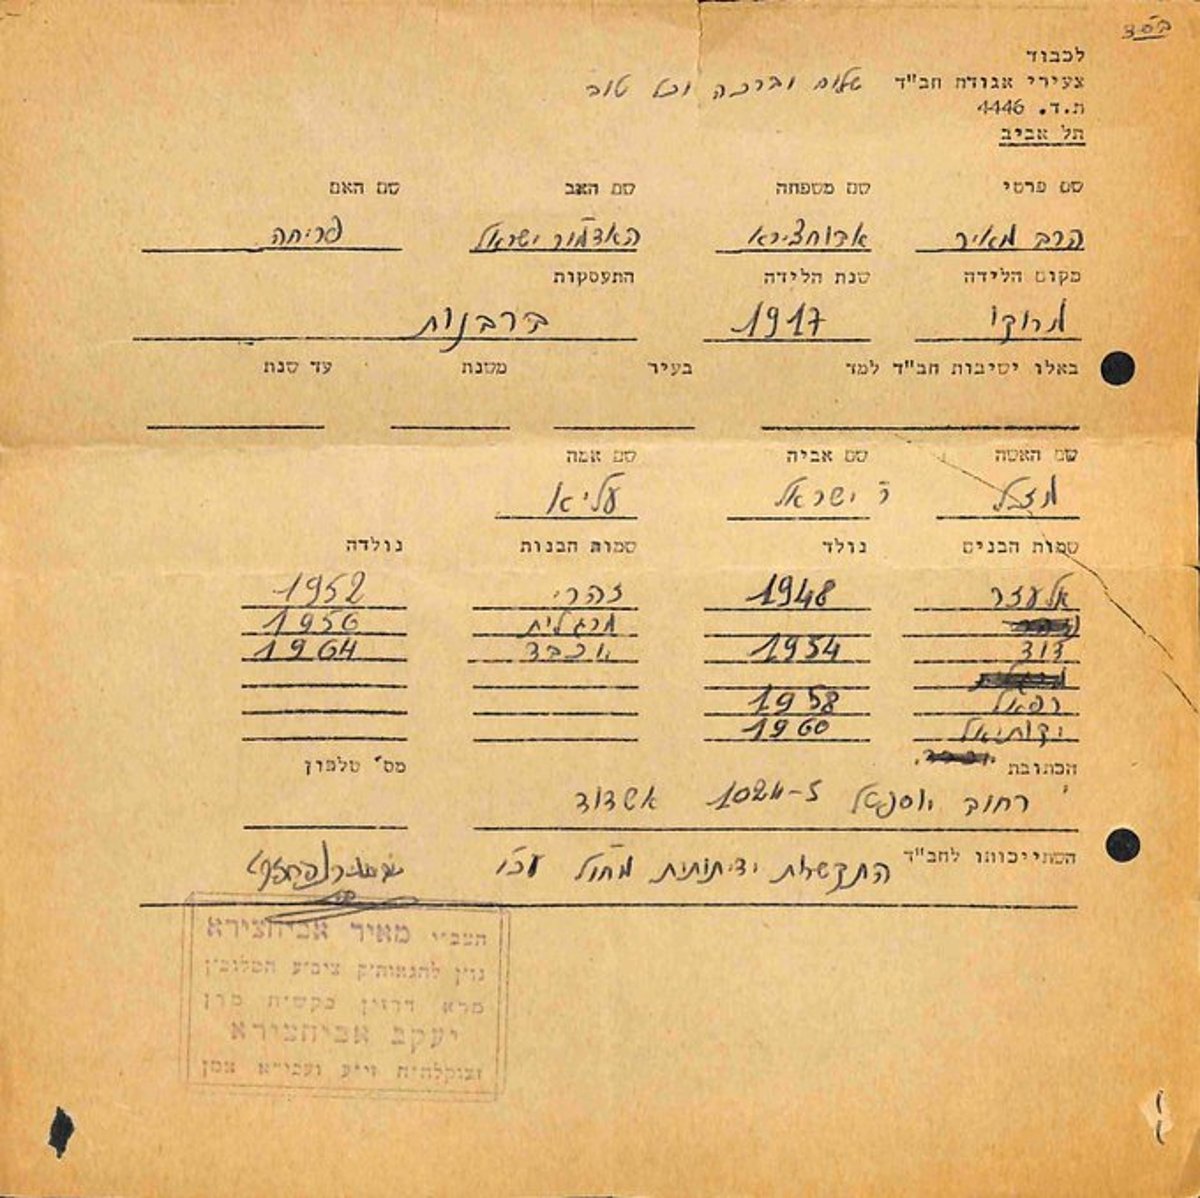 בס"ד
לכבוד
צעירי אגודת חב"ד שלום וברכה וכל טוב
ת.ד. 4446
תל אביב
שם פרטי שם משפחה שם האב שם האם
הרב מאיר אבוחצירא האדמו"ר ישראל פריחה
מקום הלידה שנת הלידה התעסקות
מרוקו 1917 ברבנות
באלו ישיבות חב"ד למד בעיר משנת עד שנת
שם האשה שם אביה שם אמה
מזל ר' ישראל עליא
שמות הבנים נולד שמות הבנות נולדה
אלעזר 1948 זהרי 1952
מרגלית 1956
דוד 1954 1964
רפאל 1958
יקותיאל 1960
הכתובת מס' טלפון
רחוב 1024-5 אשדוד
השתייכותו לחב"ד התקשרות ידידותית
הצב"י מאיר אביחצירא
יעקב אביחצירא
זצוקללה"ה זי"ע ועכי"א אמן